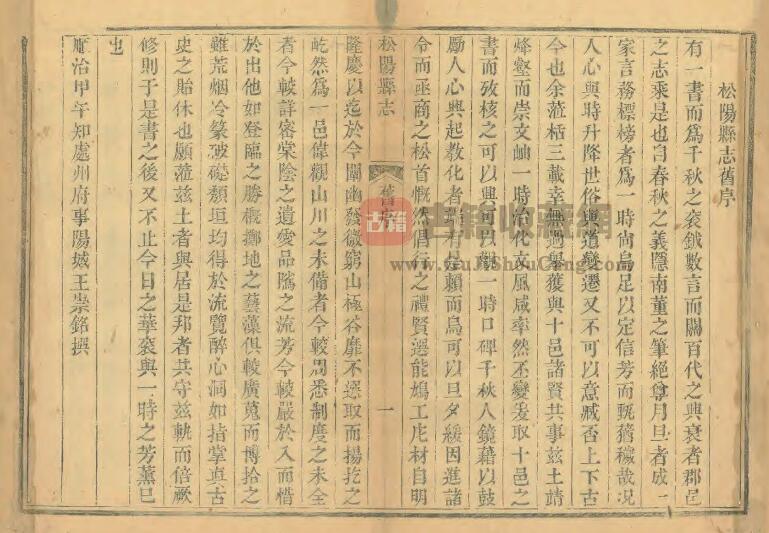 松陽縣志舊序
有一書而爲千秋之袞鉞數言而關百代之興衰者郡邑
之志乘是也自春秋之義隱南董之筆絶尊月旦者成一
家言務標榜者爲一時尚烏足以定信芳而甄猶穢哉况
人心與時升降世俗與道變遷又不可以意臧否上下古
今也余蒞栝三載幸無過舉獲與十邑諸賢共事兹土靖
烽壑而崇文岫一時治化文風咸率然丕變爰取十邑之
書而攷核之可以興可以觀一時口碑千秋人鏡藉以鼓
勵人心興起敎化者端有是賴而烏可以旦夕緩因進諸
令而亟商之松首慨然倡行之禮賢選能鳩工庀材自明
松陽縣志
舊序
一
隆慶以迄於今闡幽發微窮山極谷靡不選取而揚扢之
屹然爲一邑偉觀山川之未備者今較周悉制度之未全
者今較詳密棠陰之遺愛品隲之流芳今較嚴於入而惜
於出他如登臨之勝概擲地之藝藻俱較廣蒐而博拾之
雖荒烟冷篆破磴頽垣均得於流覽醉心洞如指掌眞古
史之貽休也願蒞兹土者與居是邦者共守兹軌而倍厥
修則于是書之後又不止今日之華袞與一時之芳薰已
也
順治甲午知處州府事陽城王崇銘撰
古籍
书籍收藏網
www.ShuJiShouCang.com